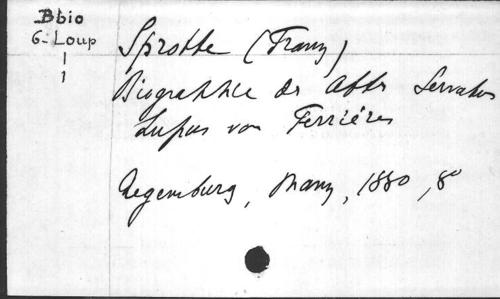 Bbio
6- Loup
1
1
Sprotte (Franz)
Biographie des Abtes Servatus
Lupus von Ferrières
Regensburg, Manz, 1880, 8°